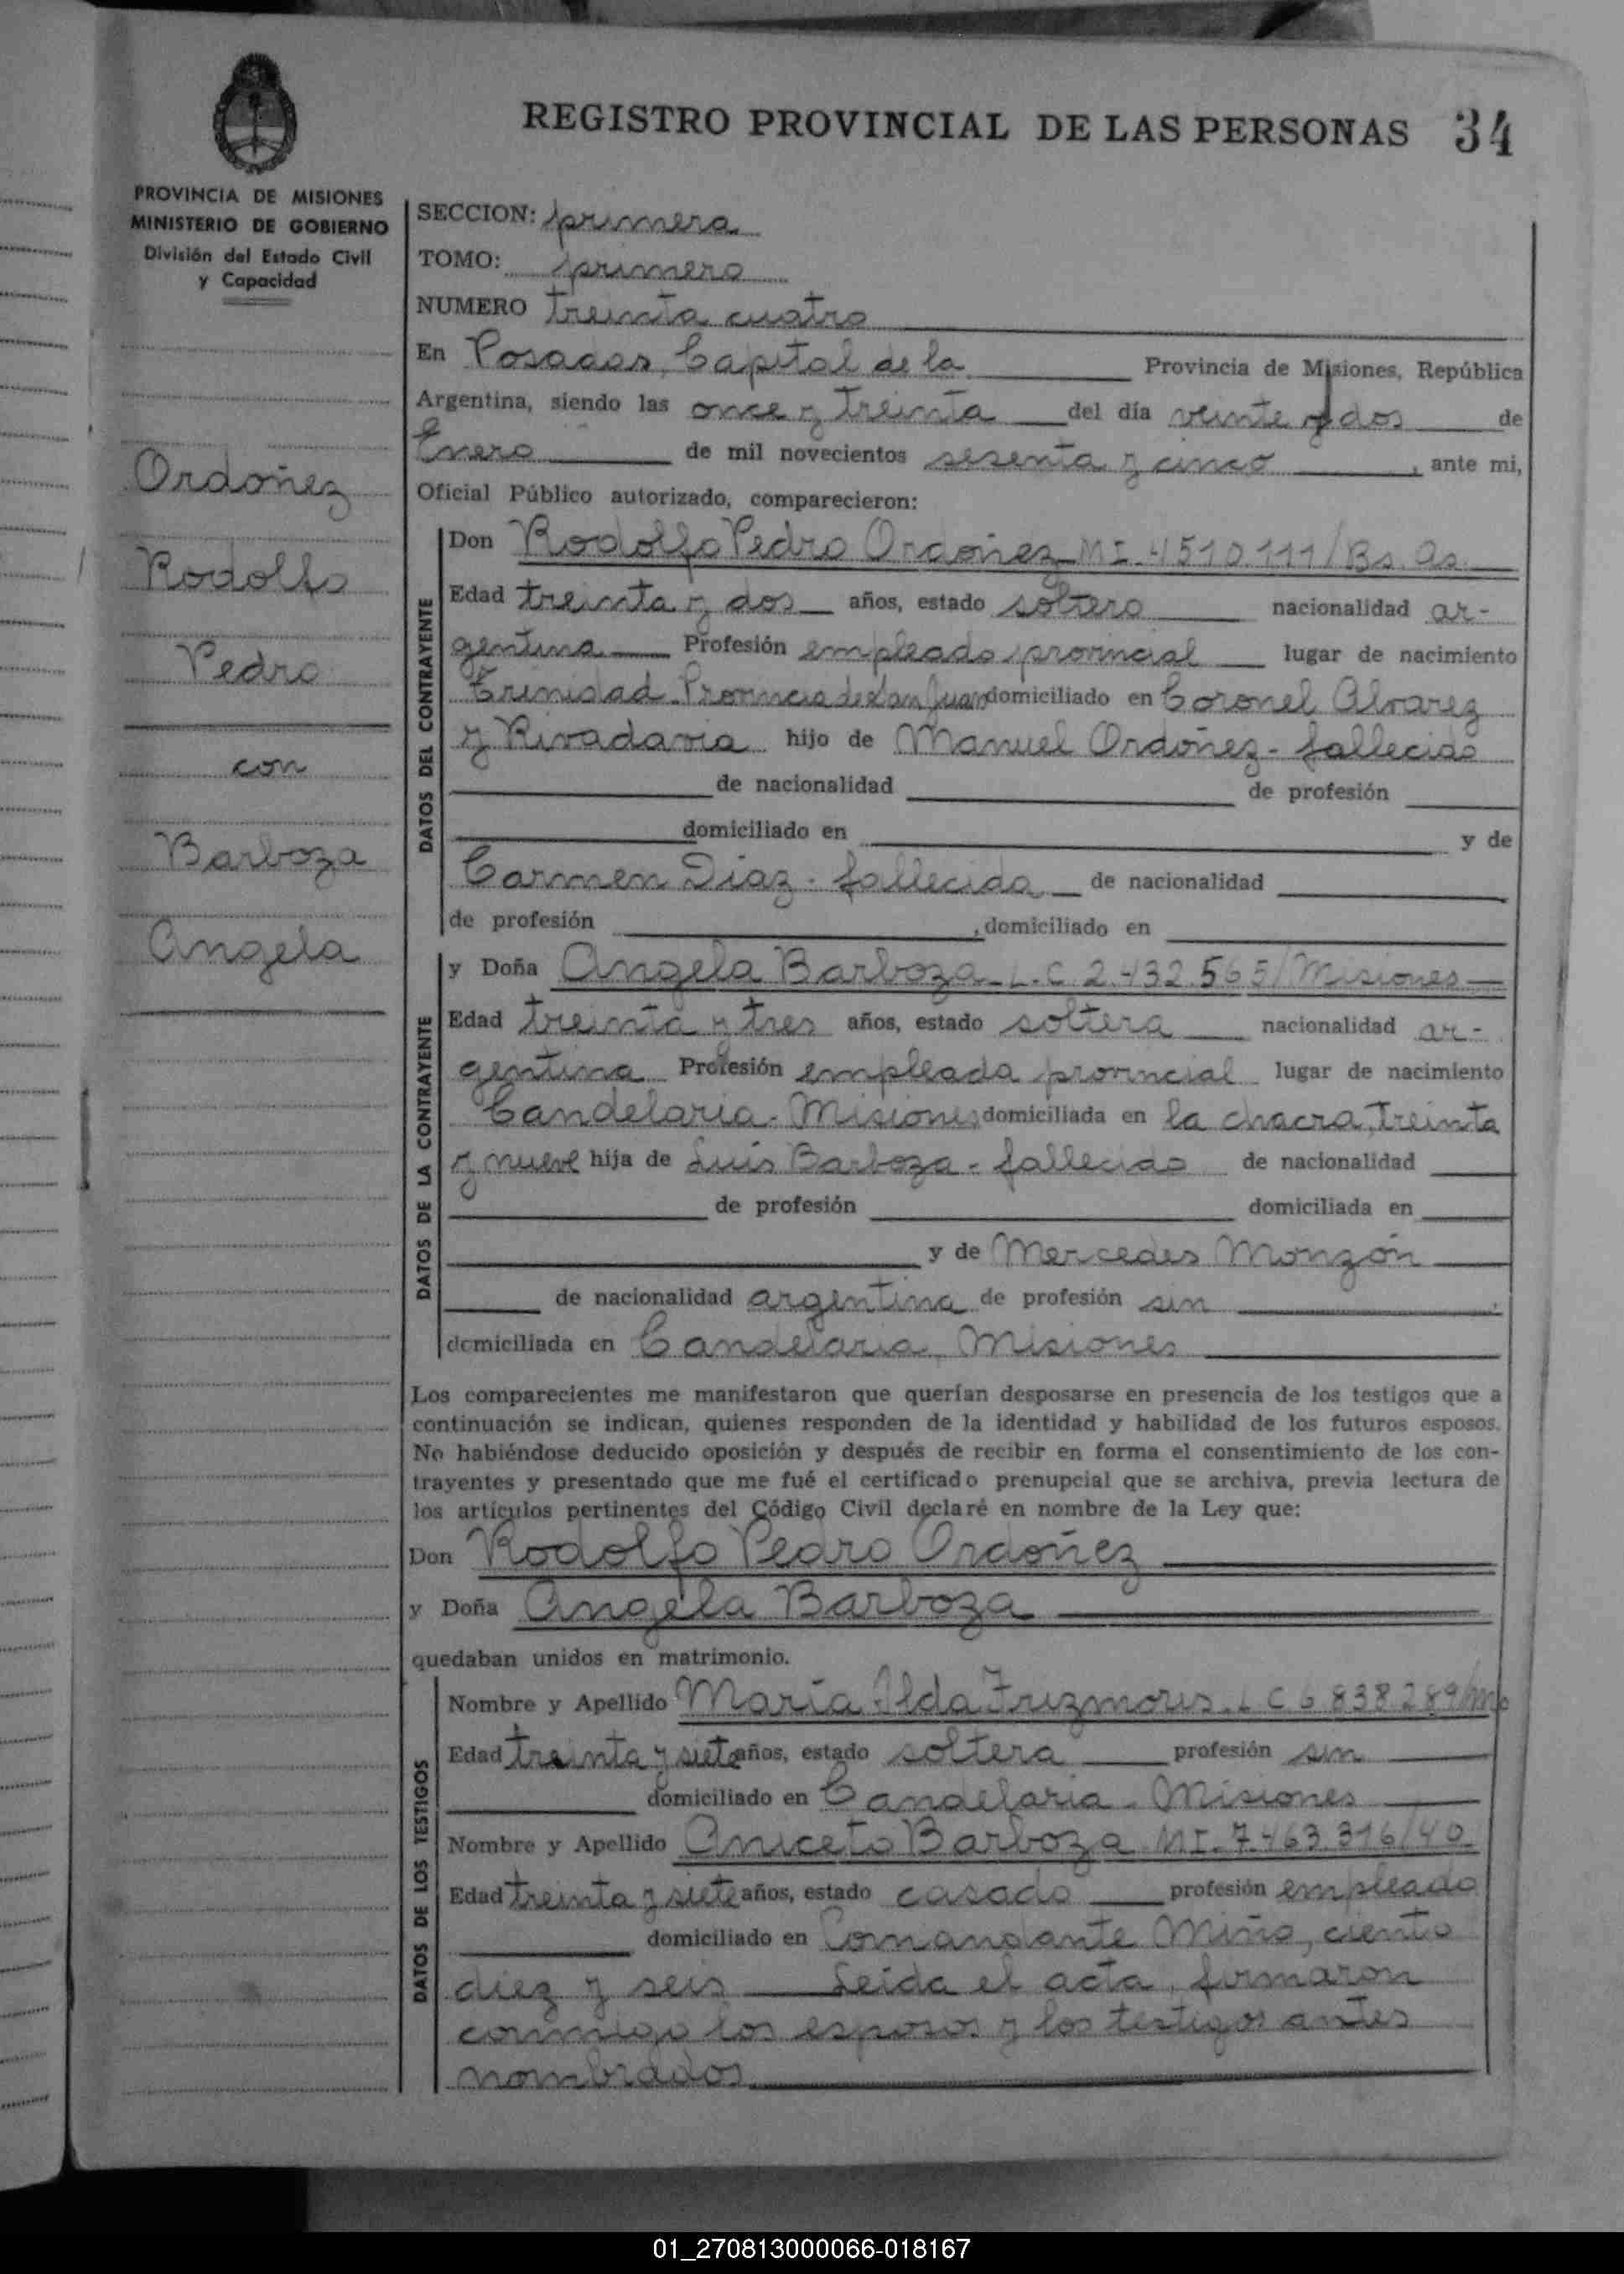 REGISTRO PROVINCIAL DE LAS PERSONAS 34
PROVINCIA DE MISIONES
MINISTERIO DE GOBIERNO
División del Estado Civil
y Capacidad
Ordoñez
Rodolfo
Pedro
con
Barboza
Angela
SECCION: primera
TOMO: primero
NUMERO treinta cuatro
En Posadas, Capital de la Provincia de Misiones, República
Argentina, siendo las once y treinta del día veinte y dos de
Enero de mil novecientos sesenta y cinco, ante mi,
Oficial Público autorizado, comparecieron:
DATOS DEL CONTRAYENTE
Don Rodolfo Pedro Ordoñez MI. 4510.111/Bs. As.
Edad treinta y dos años, estado soltero nacionalidad ar-
gentina Profesión empleado provincial lugar de nacimiento
Trinidad. Provincia de San Juan domiciliado en Coronel Alvarez
y Rivadavia hijo de Manuel Ordoñez - fallecido
de nacionalidad de profesión
domiciliado en y de
Carmen Diaz - fallecida de nacionalidad
de profesión , domiciliado en
DATOS DE LA CONTRAYENTE
y Doña Angela Barboza - L.C. 2.432.565/Misiones
Edad treinta y tres años, estado soltera nacionalidad ar-
gentina Profesión empleada provincial lugar de nacimiento
Candelaria - Misiones domiciliada en la chacra, treinta
y nueve hija de Luis Barboza - fallecido de nacionalidad
de profesión domiciliada en
y de Mercedes Monzón
de nacionalidad argentina de profesión sin
domiciliada en Candelaria, Misiones
Los comparecientes me manifestaron que querían desposarse en presencia de los testigos que a
continuación se indican, quienes responden de la identidad y habilidad de los futuros esposos.
No habiéndose deducido oposición y después de recibir en forma el consentimiento de los con-
trayentes y presentado que me fué el certificado prenupcial que se archiva, previa lectura de
los artículos pertinentes del Código Civil declaré en nombre de la Ley que:
Don Rodolfo Pedro Ordoñez
y Doña Angela Barboza
quedaban unidos en matrimonio.
DATOS DE LOS TESTIGOS
Nombre y Apellido María Ilda L C 6 838 289
Edad treinta y siete años, estado soltera profesión sin
domiciliado en Candelaria - Misiones
Nombre y Apellido Aniceto Barboza MI. 7.463.316/40
Edad treinta y siete años, estado casado profesión empleado
domiciliado en Comandante Miño, ciento
diez y seis Leida el acta, firmaron
conmigo los esposos y los testigos antes
nombrados
01_270813000066-018167